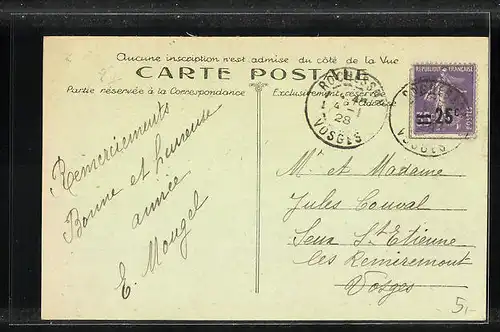 Aucune inscription n'est admise du côté de la Vue
CARTE POSTALE
Partie réservée à la Correspondance
Exclusivement réservée
Remerciements
Bonne et heureuse
année
E. Mougel
VOSGES
28
RÉPUBLIQUE FRANÇAISE
25c
POSTES
VOSGES
Mr et Madame
Jules Couval
St Etienne
les Remiremont
Vosges
5,-